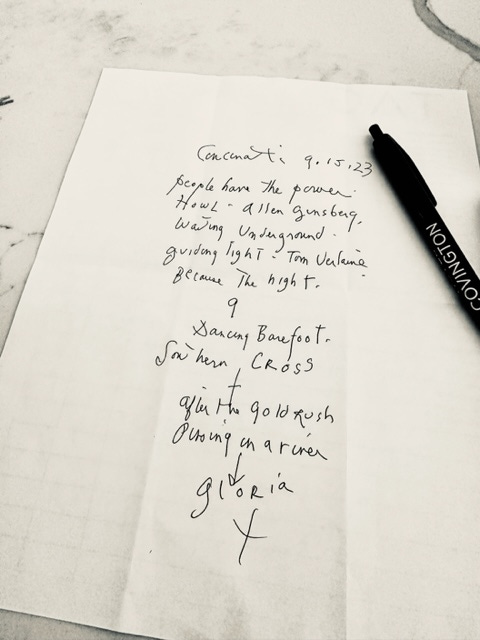 Cincinnati 9.15.23
people have the power.
Howl - allen ginsberg.
Waiting Underground.
guiding light - Tom Verlaine
Because The night.
9
Dancing Barefoot.
Southern CROSS
after the gold rush
Pissing in a river
gloria
COVINGTON